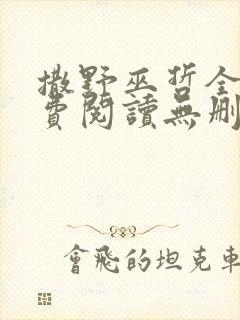 撒野巫哲全
費閱讀無刪
會飛的坦克車